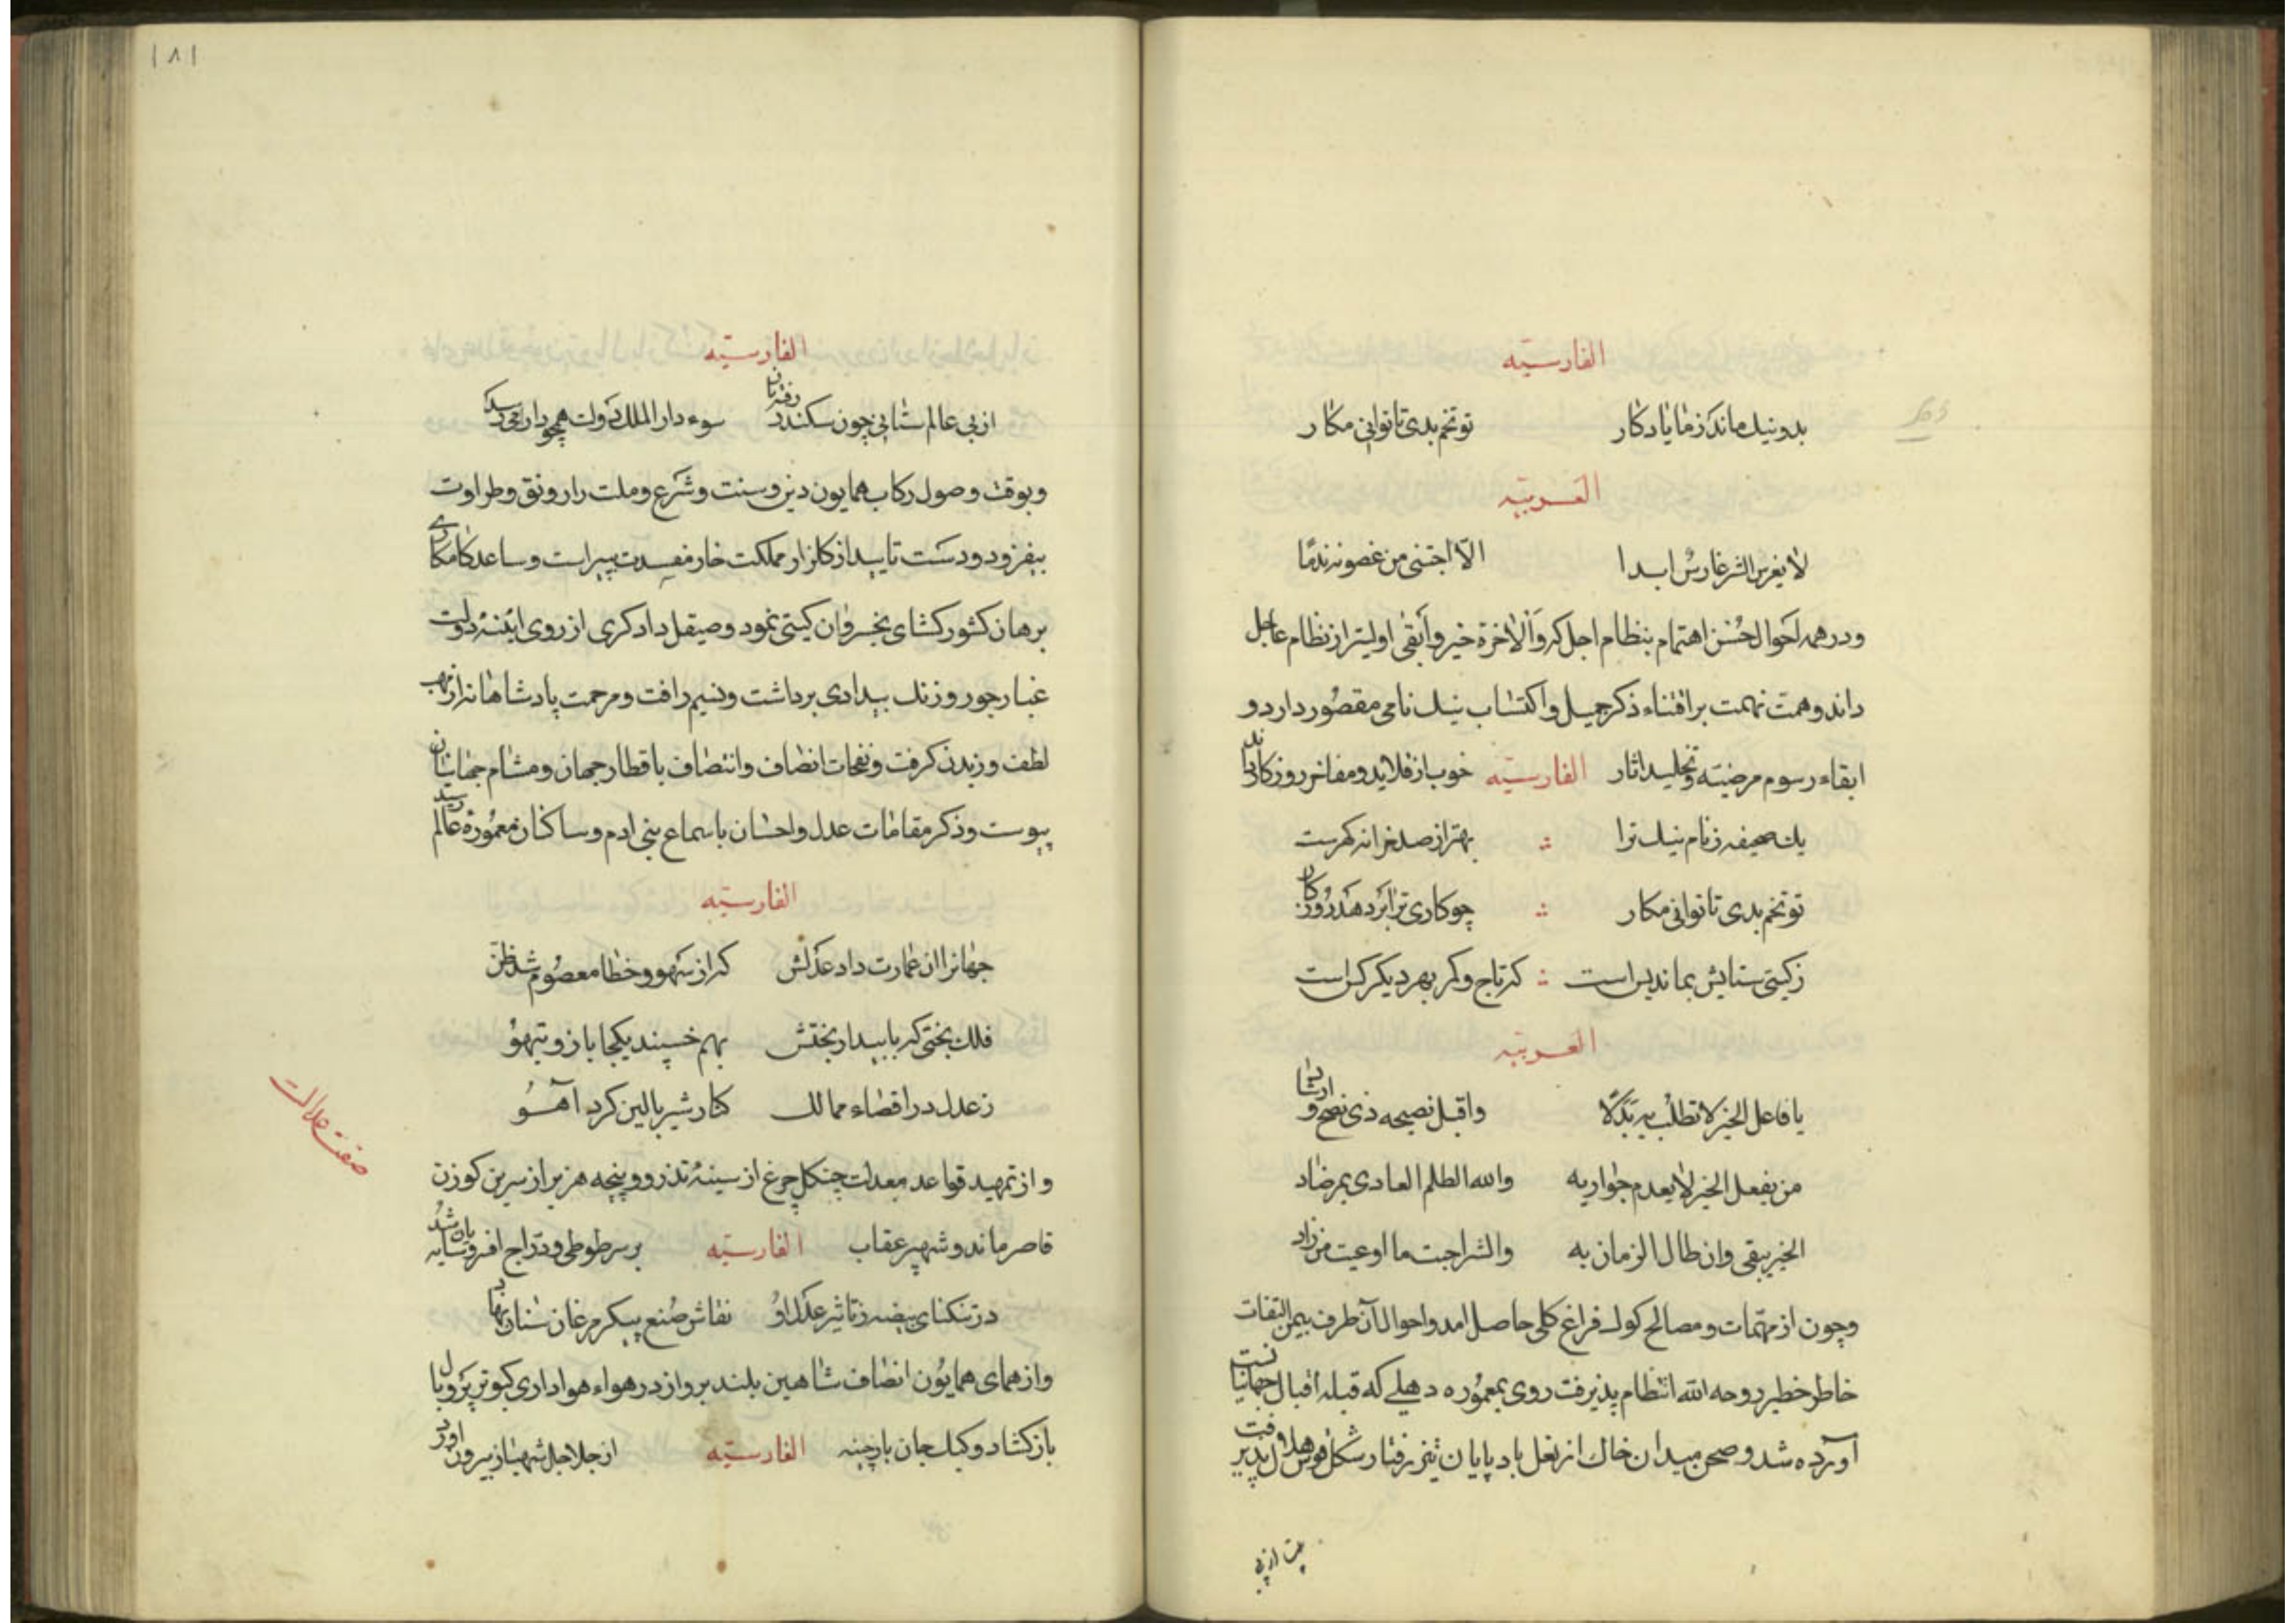 الفارسیّه
بدونیك ماند ز ما یادکار تو تخم بدی تا توانی مکار
العربیّه
لا یغرس الشر غارسٌ ابدا الّا اجتنی من غصونه ندمًا
و در همه احوال حُسن اهتمام بنظام اجل که وَالاخرة خیر وابقی اولیتر از نظام عاجل
داند و همت نهمت بر اقتناء ذکر جمیل و اکتساب نیك نامی مقصُور دارد و
ابقاء رسوم مرضیّه و تخلید اثار الفارسیّه خوب از قلاید و مفاخر روزکار داند
یك صحیفه ز نام نیك ترا بهتر از صد خزانه کهرست
تو تخم بدی تا توانی مکار چو کاری ترا بر دهد روزکار
ز کیتی ستایش بماند بس است که تاج و کمر بهر دیکر کس است
العربیّه
یا فاعل الخیر لا تطلب به بَدَلًا واقبل نصیحه ذی نصح و ارشاد
من یفعل الخیر لا یعدم جوازیه والله الظلم العادی بمرصاد
الخیر یبقی وان طال الزمان به والشر اخبث ما اوعیت من زاد
و چون از مهمّات و مصالح کول فراغ کلی حاصل امد و احوال آن طرف بیمن التفات
خاطر خطیر روحه الله انتظام پذیرفت روی بمعمُوره دهلے که قبله اقبال جهانیانست
آورده شد و صحن میدان خاك از نعل باد پایان تیز رفتار شکل قوس هلال پذیرفت
بیت از پی
۱۸۱
الفارسیّه
از پی عالم ستانی چون سکندر رفته باز سوء دار الملك دولت همچو دارا می رسد
و بوقت وصول رکاب همایون دین و سنت و شرع و ملت را رونق و طراوت
بیفزود و دست تایید از کلزار مملکت خار مفسدت بپیراست و ساعد کامکاری
برهان کشور کشای بخسروان کیتی نمود و صیقل دادکری از روی ایٔنهٔ دولت
غبار جور و زنك بیدادی برداشت و نسیم رافت و مرحمت پادشاهانه از مهب
لطف وزیدن کرفت و نفحات انصاف و انتصاف باقطار جهان و مشام جهانیان
پیوست و ذکر مقامات عدل و احسان باسماع بنی ادم و ساکنان معمُورهٔ عالم رسید
الفارسیّه
جهانرا ان عمارت داد عدلش که از سهو و خطا معصُوم شد ظن
فلك بختی که با بیدار بختش بهم خسپند یکجا باز و تیهو
ز عدل در اقصاء ممالك کنار شیر بالین کرد اهو
و از تمهید قواعد معدلت چنکل چرغ از سینهٔ تذرو و پنجه هزبر از سرین کوزن
قاصر ماند و شهپر عقاب الفارسیّه بر سر طوطی و درّاج افروسایه بان شد
در تنکنای بیضه ز تاثیر عدل او نقاش صُنع پیکر مرغان ستان نهاد
و از همای همایُون انصاف شاهین بلند پرواز در هواء هواداری کبوتر پر و بال
باز کشاد و کبك جان باز چینه الفارسیّه از جلاجل شهباز بیرون اورد
صفت عدالت